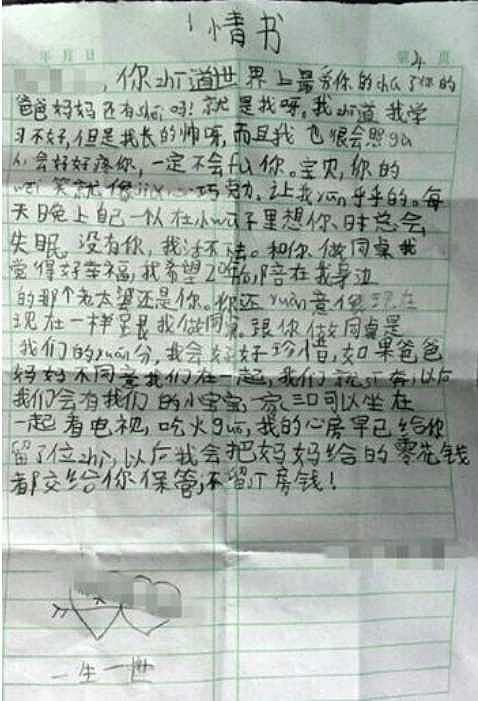 情书
年 月 日 第 页
,你zhi道世界上最爱你的chu了你的
爸爸妈妈还有shei吗!就是我呀。我zhi道我学
习不好,但是我长的帅呀,而且我也很会照gu
人会好好疼你,一定不会fu你。宝贝,你的
wei笑就像 巧克力,让我yun乎乎的。每
天日晚上自己一个人在小 子里想你、时总会
失眠。没有你,我活不去。和你做同桌我
觉得好幸福,我希望20年 ,陪在我身边
的那个老太婆还是你。你还yuan意像现在
现在一样坐跟我做同桌。跟你做同桌是
我们的yuan分,我会好好珍惜,如果爸爸
妈妈不同意我们在一起,我们就 奔,以后
我们会有我们的小宝宝一家三口可以坐在
一起看电视,吃火guo,我的心房早已给你
留了位zhi,以后我会把妈妈给的零花钱
都交给你保管,不留 房钱!
一生一世